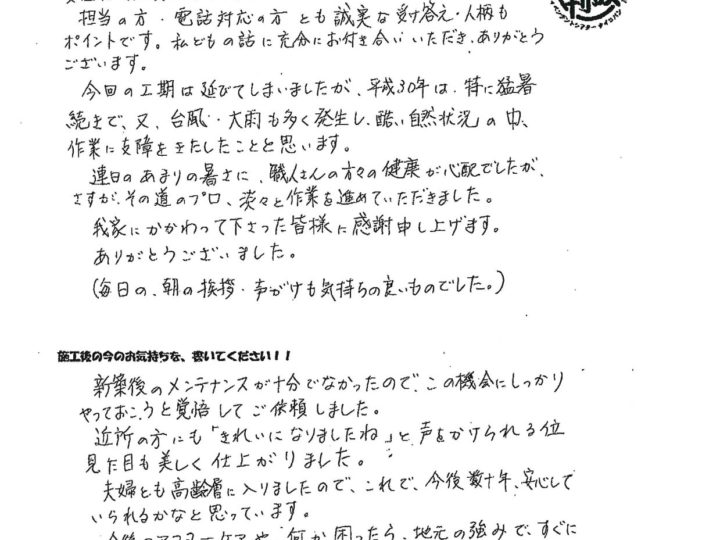 担当の方・電話対応の方とも誠実な受け答え・人柄も
ポイントです。私どもの話に充分にお付き合いいただき、ありがとう
ございます。
今回の工期は延びてしまいましたが、平成30年は、特に猛暑
続きで、又、台風・大雨も多く発生し、酷い自然状況の中、
作業に支障をきたしたことと思います。
連日のあまりの暑さに、職人さんの方々の健康が心配でしたが、
さすが、その道のプロ、淡々と作業を進めていただきました。
我家にかかわって下さった皆様に感謝申し上げます。
ありがとうございました。
(毎日の、朝の挨拶・声がけも気持ちの良いものでした。)
施工後の今のお気持ちを、書いてください!!
新築後のメンテナンスが十分でなかったので、この機会にしっかり
やっておこうと覚悟してご依頼しました。
近所の方にも「きれいになりましたね」と声をかけられる位
見た目も美しく仕上がりました。
夫婦とも高齢層に入りましたので、これで、今後数十年、安心して
いられるかなと思っています。
今後のアフターケアや、何か困ったら、地元の強みで、すぐに